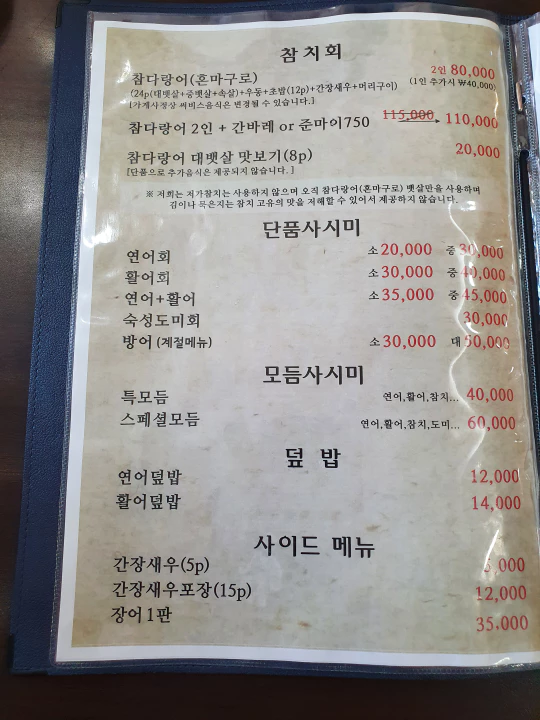 참치회
참다랑어(혼마구로) 2인 80,000
(24p(대뱃살+중뱃살+속살)+우동+초밥(12p)+간장새우+머리구이) (1인 추가시 ₩40,000)
[가게사정상 써비스음식은 변경될 수 있습니다.]
참다랑어 2인 + 간바레 or 준마이750 115,000 110,000
참다랑어 대뱃살 맛보기(8p) 20,000
[단품으로 추가음식은 제공되지 않습니다.]
※ 저희는 저가참치는 사용하지 않으며 오직 참다랑어(혼마구로) 뱃살만을 사용하며
김이나 묵은지는 참치 고유의 맛을 저해할 수 있어서 제공하지 않습니다.
단품사시미
연어회 소 20,000 중 30,000
활어회 소 30,000 중 40,000
연어+활어 소 35,000 중 45,000
숙성도미회 30,000
방어 (계절메뉴) 소 30,000 대 50,000
모듬사시미
특모듬 연어,활어,참치... 40,000
스페셜모듬 연어,활어,참치,도미... 60,000
덮 밥
연어덮밥 12,000
활어덮밥 14,000
사이드 메뉴
간장새우(5p) ,000
간장새우포장(15p) 12,000
장어 1판 35.000